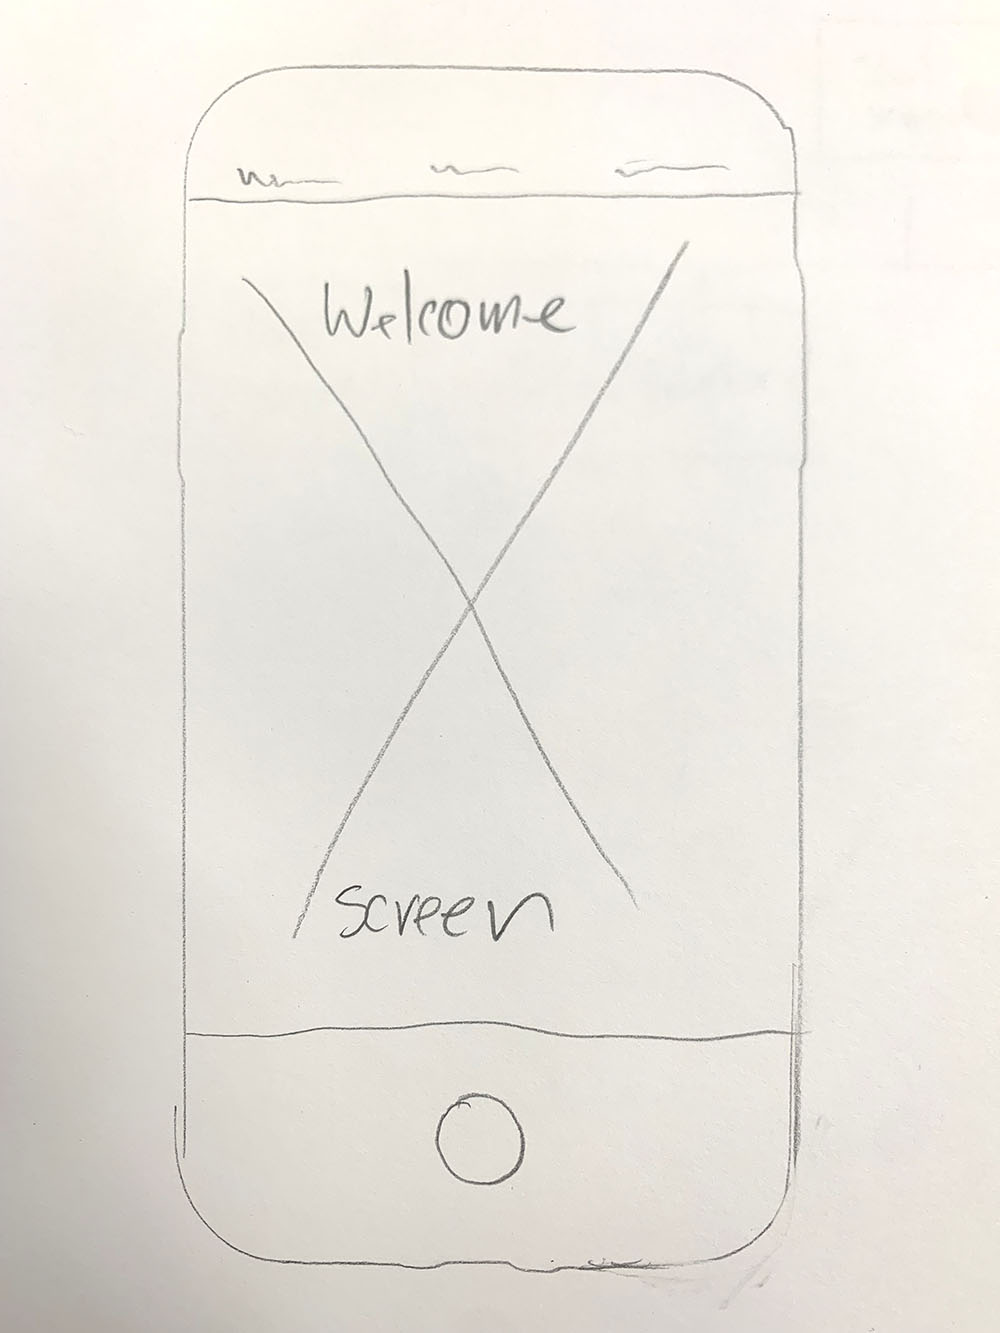 Welcome
screen